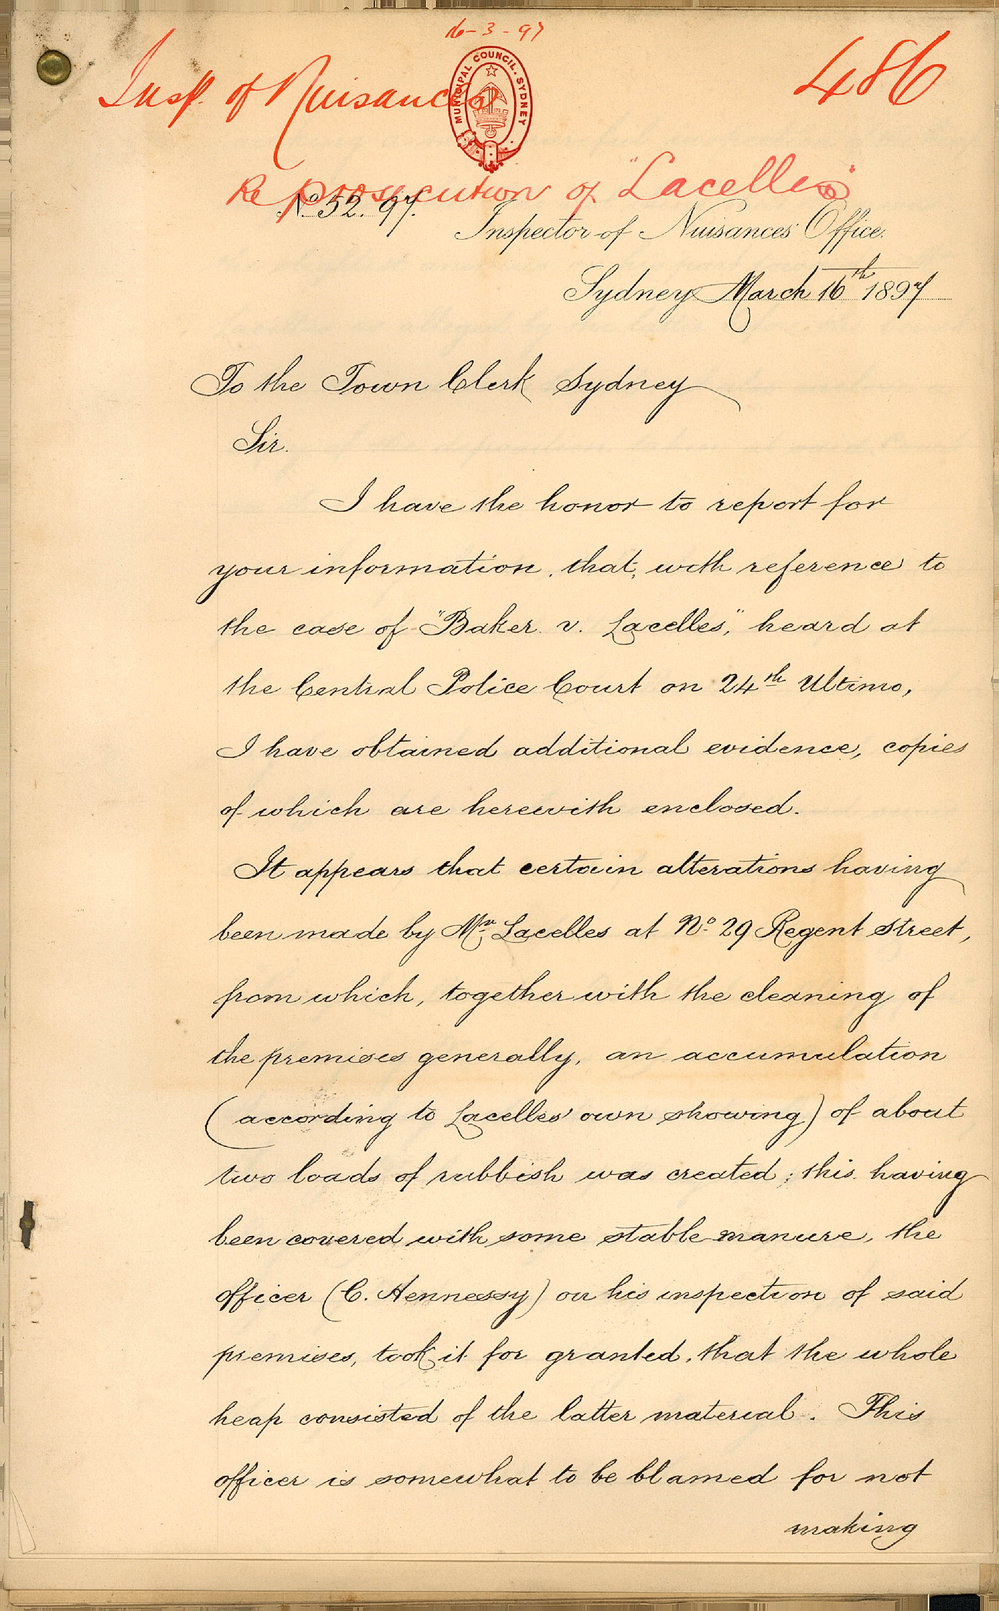 16-3-97
Insp. of Nuisances
486
MUNICIPAL COUNCIL. SYDNEY
Re prosecution of "Lacelles"
No 52. 97.
Inspector of Nuisances' Office.
Sydney March 16th 1897
To the Town Clerk Sydney
Sir.
I have the honor to report for
your information, that, with reference to
the case of "Baker v. Lacelles," heard at
the Central Police Court on 24th Ultimo,
I have obtained additional evidence, copies
of which are herewith enclosed.
It appears that certain alterations having
been made by Mr. Lacelles at No. 29 Regent Street,
from which, together with the cleaning of
the premises generally, an accumulation
(according to Lacelles' own showing) of about
two loads of rubbish was created; this having
been covered with some stable manure, the
officer (C. Hennessy) on his inspection of said
premises, took it for granted, that the whole
heap consisted of the latter material. This
officer is somewhat to be blamed for not
making